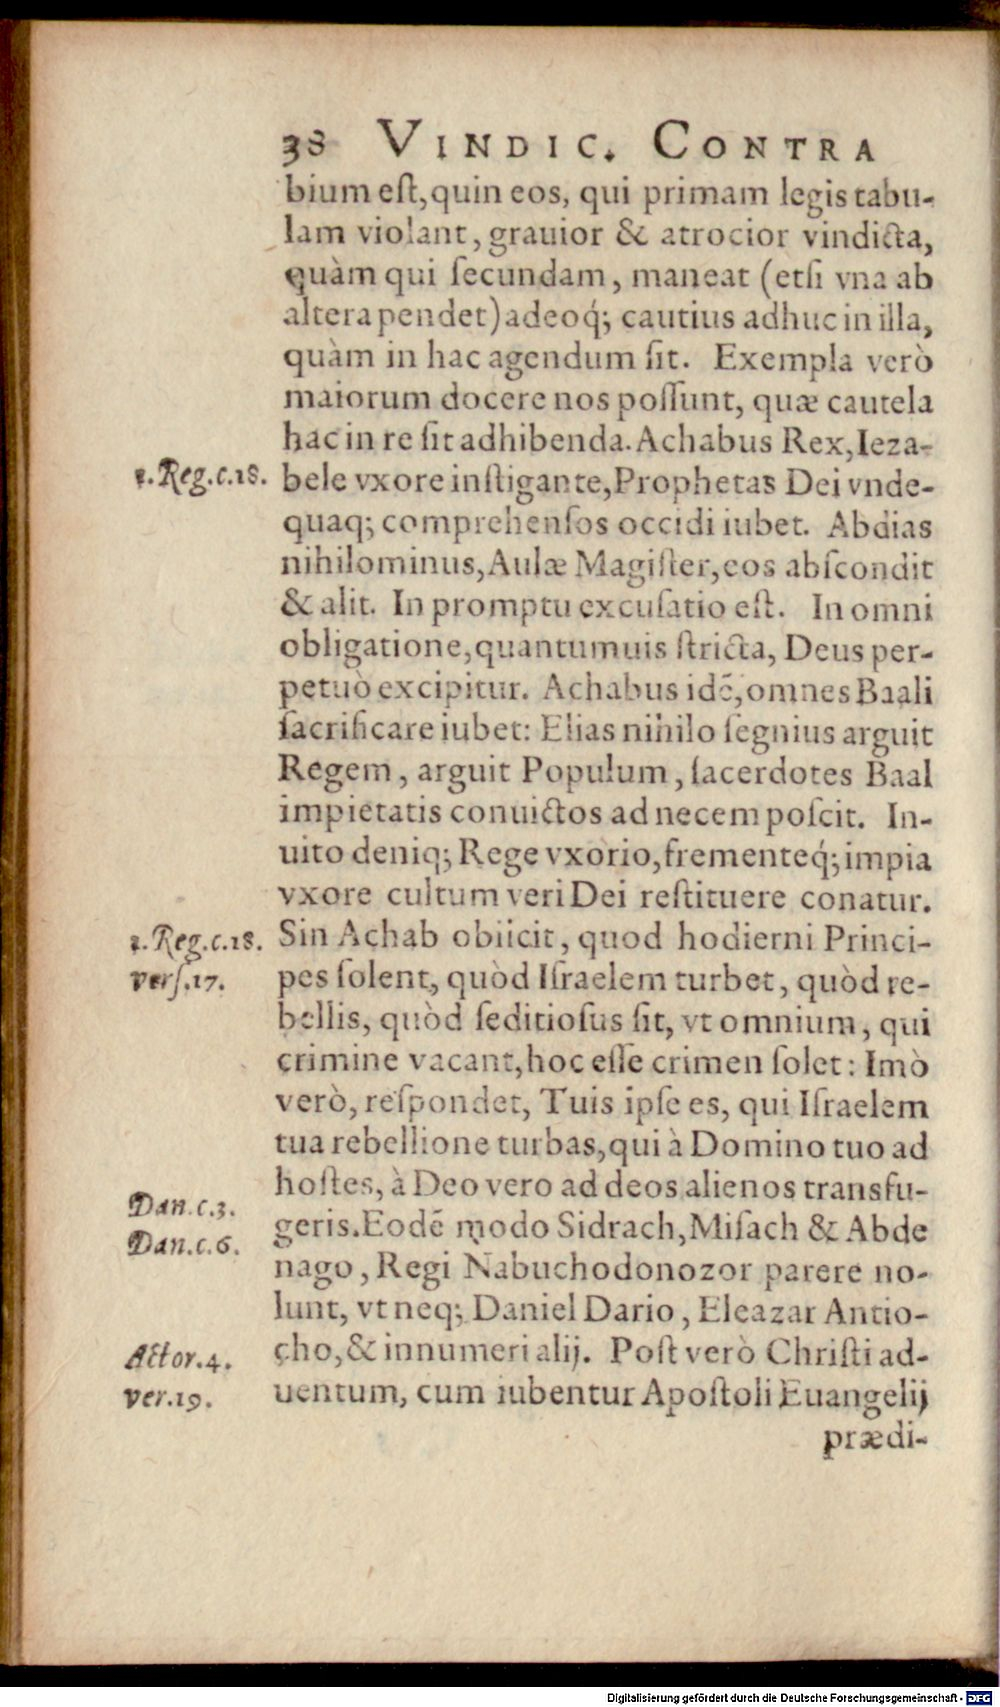 38 VINDIC. CONTRA
bium eſt, quin eos, qui primam legis tabu-
lam violant, grauior & atrocior vindicta,
quàm qui ſecundam, maneat (etſi vna ab
altera pendet) adeoq́; cautius adhuc in illa,
quàm in hac agendum ſit. Exempla verò
maiorum docere nos poſſunt, quæ cautela
hac in re ſit adhibenda. Achabus Rex, Ieza-
1. Reg. c. 18. bele vxore inſtigante, Prophetas Dei vnde-
quaq; comprehenſos occidi iubet. Abdias
nihilominus, Aulæ Magiſter, eos abſcondit
& alit. In promptu excuſatio eſt. In omni
obligatione, quantumuis ſtricta, Deus per-
petuò excipitur. Achabus idẽ, omnes Baali
ſacrificare iubet: Elias nihilo ſegnius arguit
Regem, arguit Populum, ſacerdotes Baal
impietatis conuictos ad necem poſcit. In-
uito deniq; Rege vxorio, frementeq́; impia
vxore cultum veri Dei reſtituere conatur.
1. Reg. c. 18. Sin Achab obiicit, quod hodierni Princi-
verſ. 17. pes ſolent, quòd Iſraelem turbet, quòd re-
bellis, quòd ſeditioſus ſit, vt omnium, qui
crimine vacant, hoc eſſe crimen ſolet: Imò
verò, reſpondet, Tuis ipſe es, qui Iſraelem
tua rebellione turbas, qui à Domino tuo ad
hoſtes, à Deo vero ad deos alienos transfu-
Dan. c. 3. geris. Eodẽ modo Sidrach, Miſach & Abde
Dan. c. 6. nago, Regi Nabuchodonozor parere no-
lunt, vt neq; Daniel Dario, Eleazar Antio-
Actor. 4. cho, & innumeri alij. Poſt verò Chriſti ad-
ver. 19. uentum, cum iubentur Apoſtoli Euangelij
prædi-
Digitalisierung gefördert durch die Deutsche Forschungsgemeinschaft - DFG